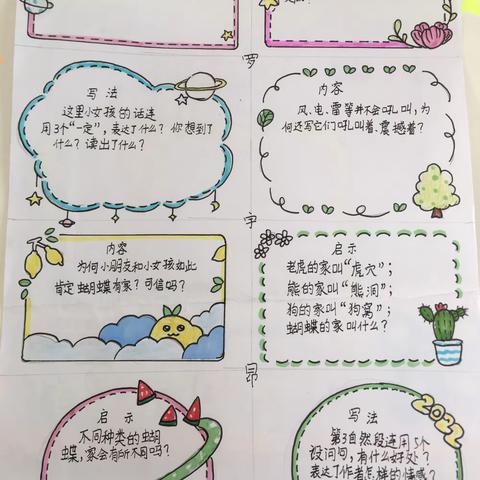 罗
写法
这里小女孩的话连
用3个“一定”，表达了什么？你想到了
什么？读出了什么？
内容
风、电、雷等并不会吼叫，为
何还写它们吼叫着、震撼着？
宇
内容
为何小朋友和小女孩如此
肯定蝴蝶有家？可信吗？
启示
老虎的家叫“虎穴”；
熊的家叫“熊洞”；
狗的家叫“狗窝”；
蝴蝶的家叫什么？
昂
启示
不同种类的蝴
蝶，家会有所不同吗？
写法
2022
第3自然段连用5个
设问句，有什么好处？
表达了作者怎样的情感？